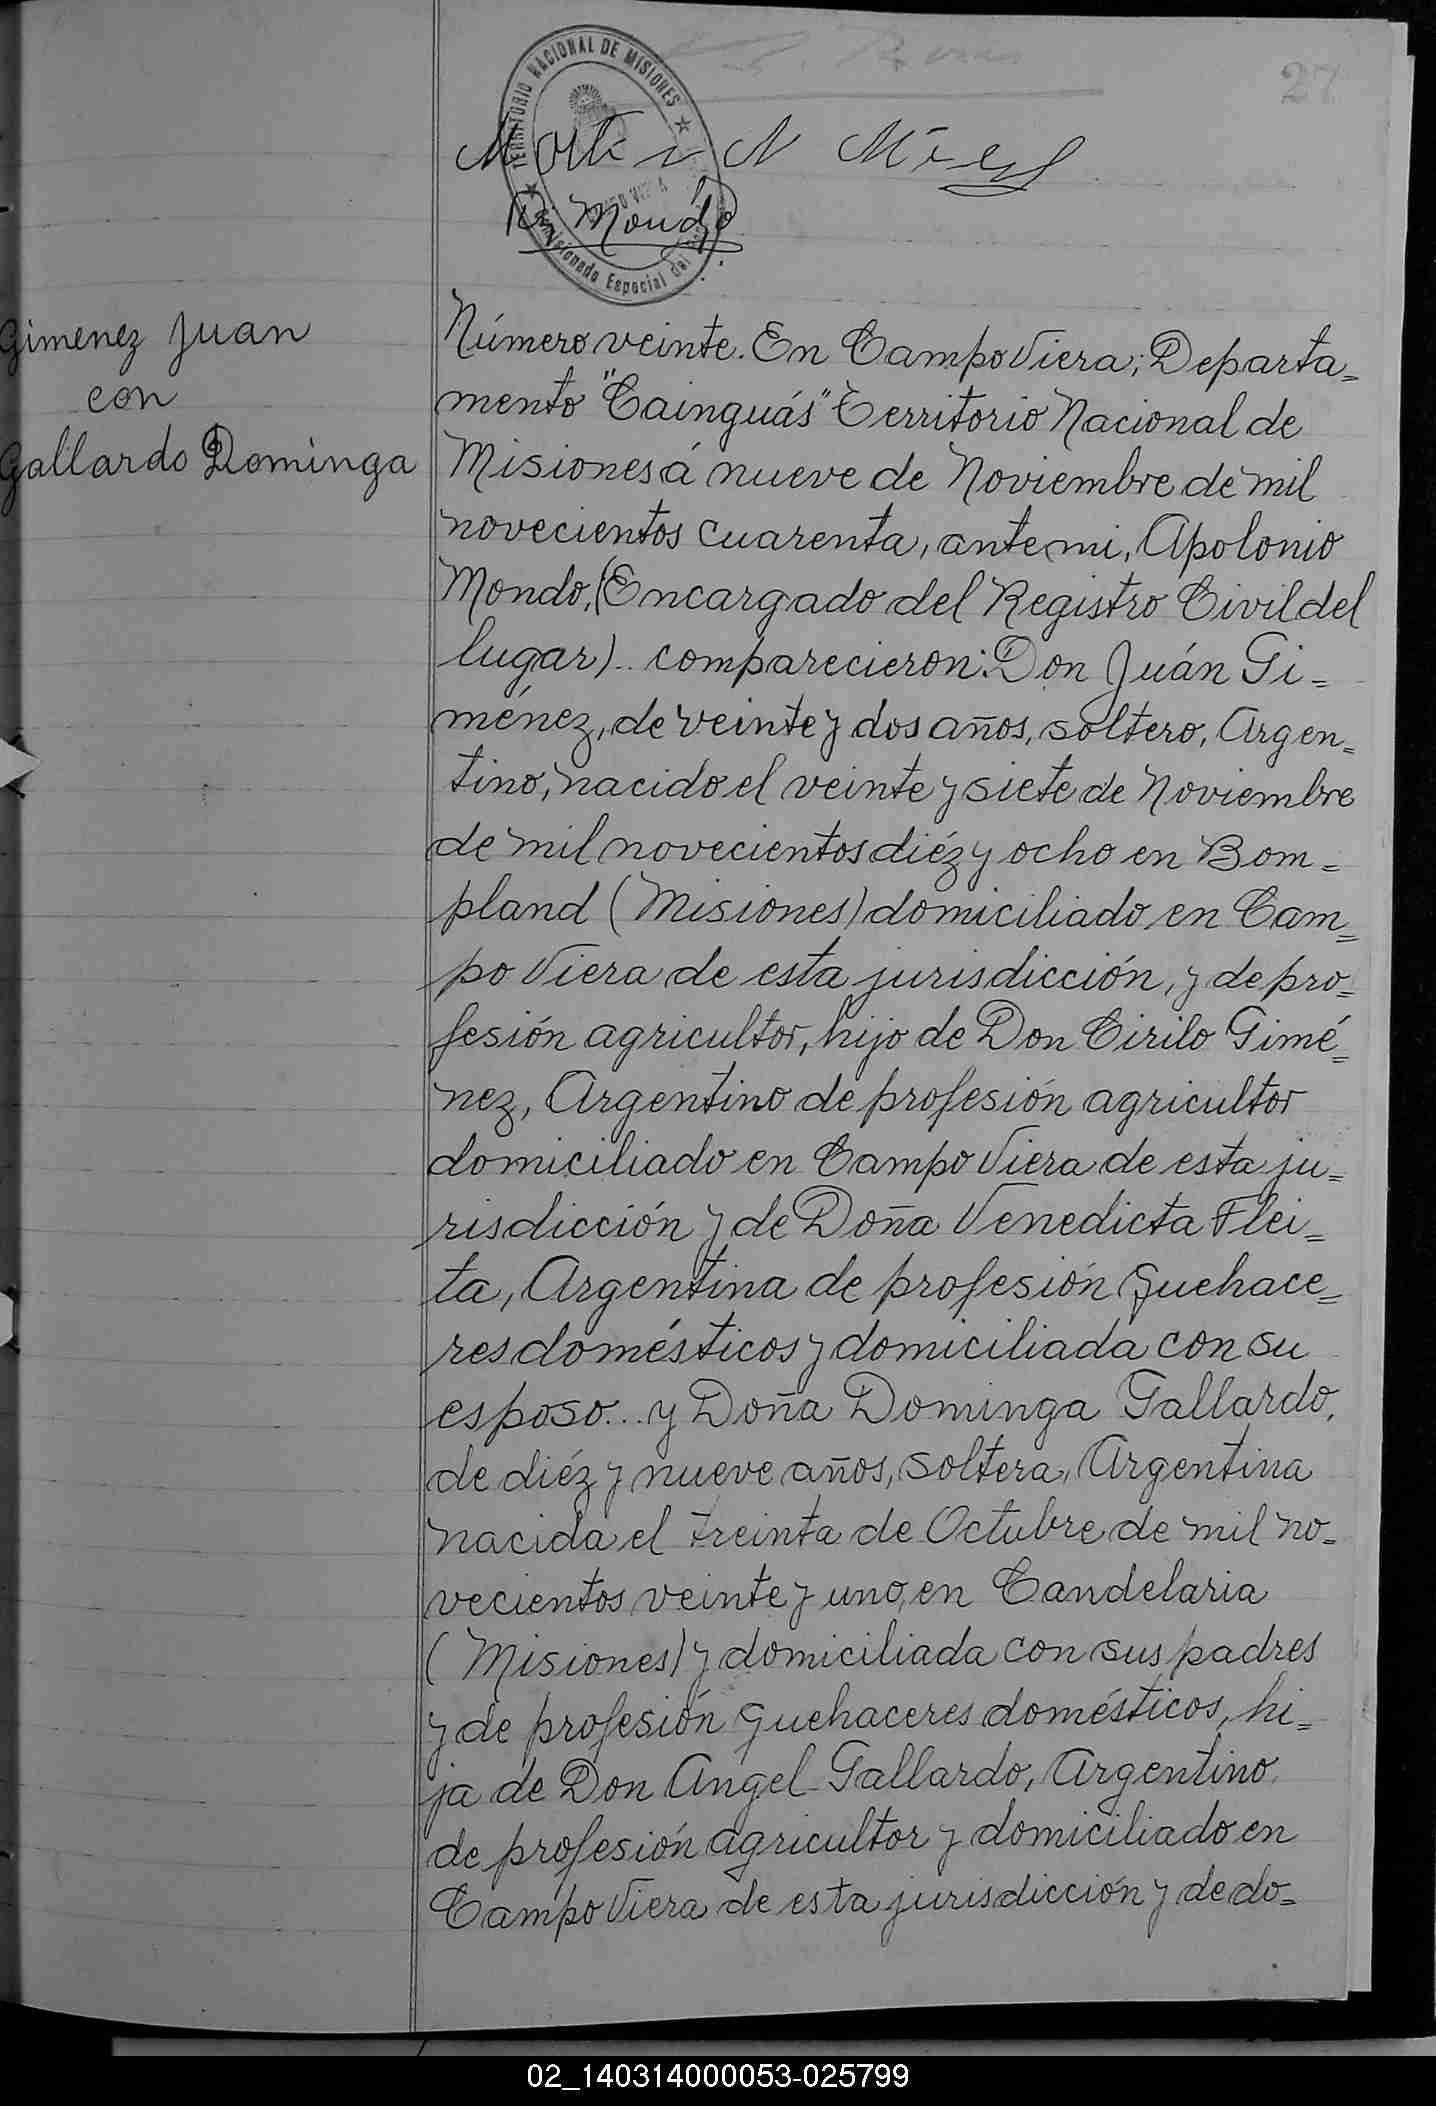 27
TERRITORIO NACIONAL DE MISIONES
Comisionado Especial del
Mondo
Gimenez Juan
con
Gallardo Dominga
Número veinte. En Campo Viera; Departa=
mento "Cainguás" Territorio Nacional de
Misiones á nueve de Noviembre de mil
novecientos cuarenta, ante mi, Apolonio
Mondo, (Encargado del Registro Civil del
lugar).. comparecieron: Don Juán Gi=
ménez, de veinte y dos años, soltero, Argen=
tino, nacido el veinte y siete de Noviembre
de mil novecientos diéz y ocho en Bom=
pland (Misiones) domiciliado en Cam=
po Viera de esta jurisdicción, y de pro=
fesión agricultor, hijo de Don Cirilo Gimé=
nez, Argentino de profesión agricultor
domiciliado en Campo Viera de esta ju=
risdicción y de Doña Venedicta Flei=
ta, Argentina de profesión Quehace=
res domésticos y domiciliada con su
esposo... y Doña Dominga Gallardo,
de diéz y nueve años, soltera, Argentina
nacida el treinta de Octubre de mil no=
vecientos veinte y uno, en Candelaria
(Misiones) y domiciliada con sus padres
y de profesión quehaceres domésticos, hi=
ja de Don Angel Gallardo, Argentino
de profesión agricultor y domiciliado en
Campo Viera de esta jurisdicción y de do=
02_140314000053-025799